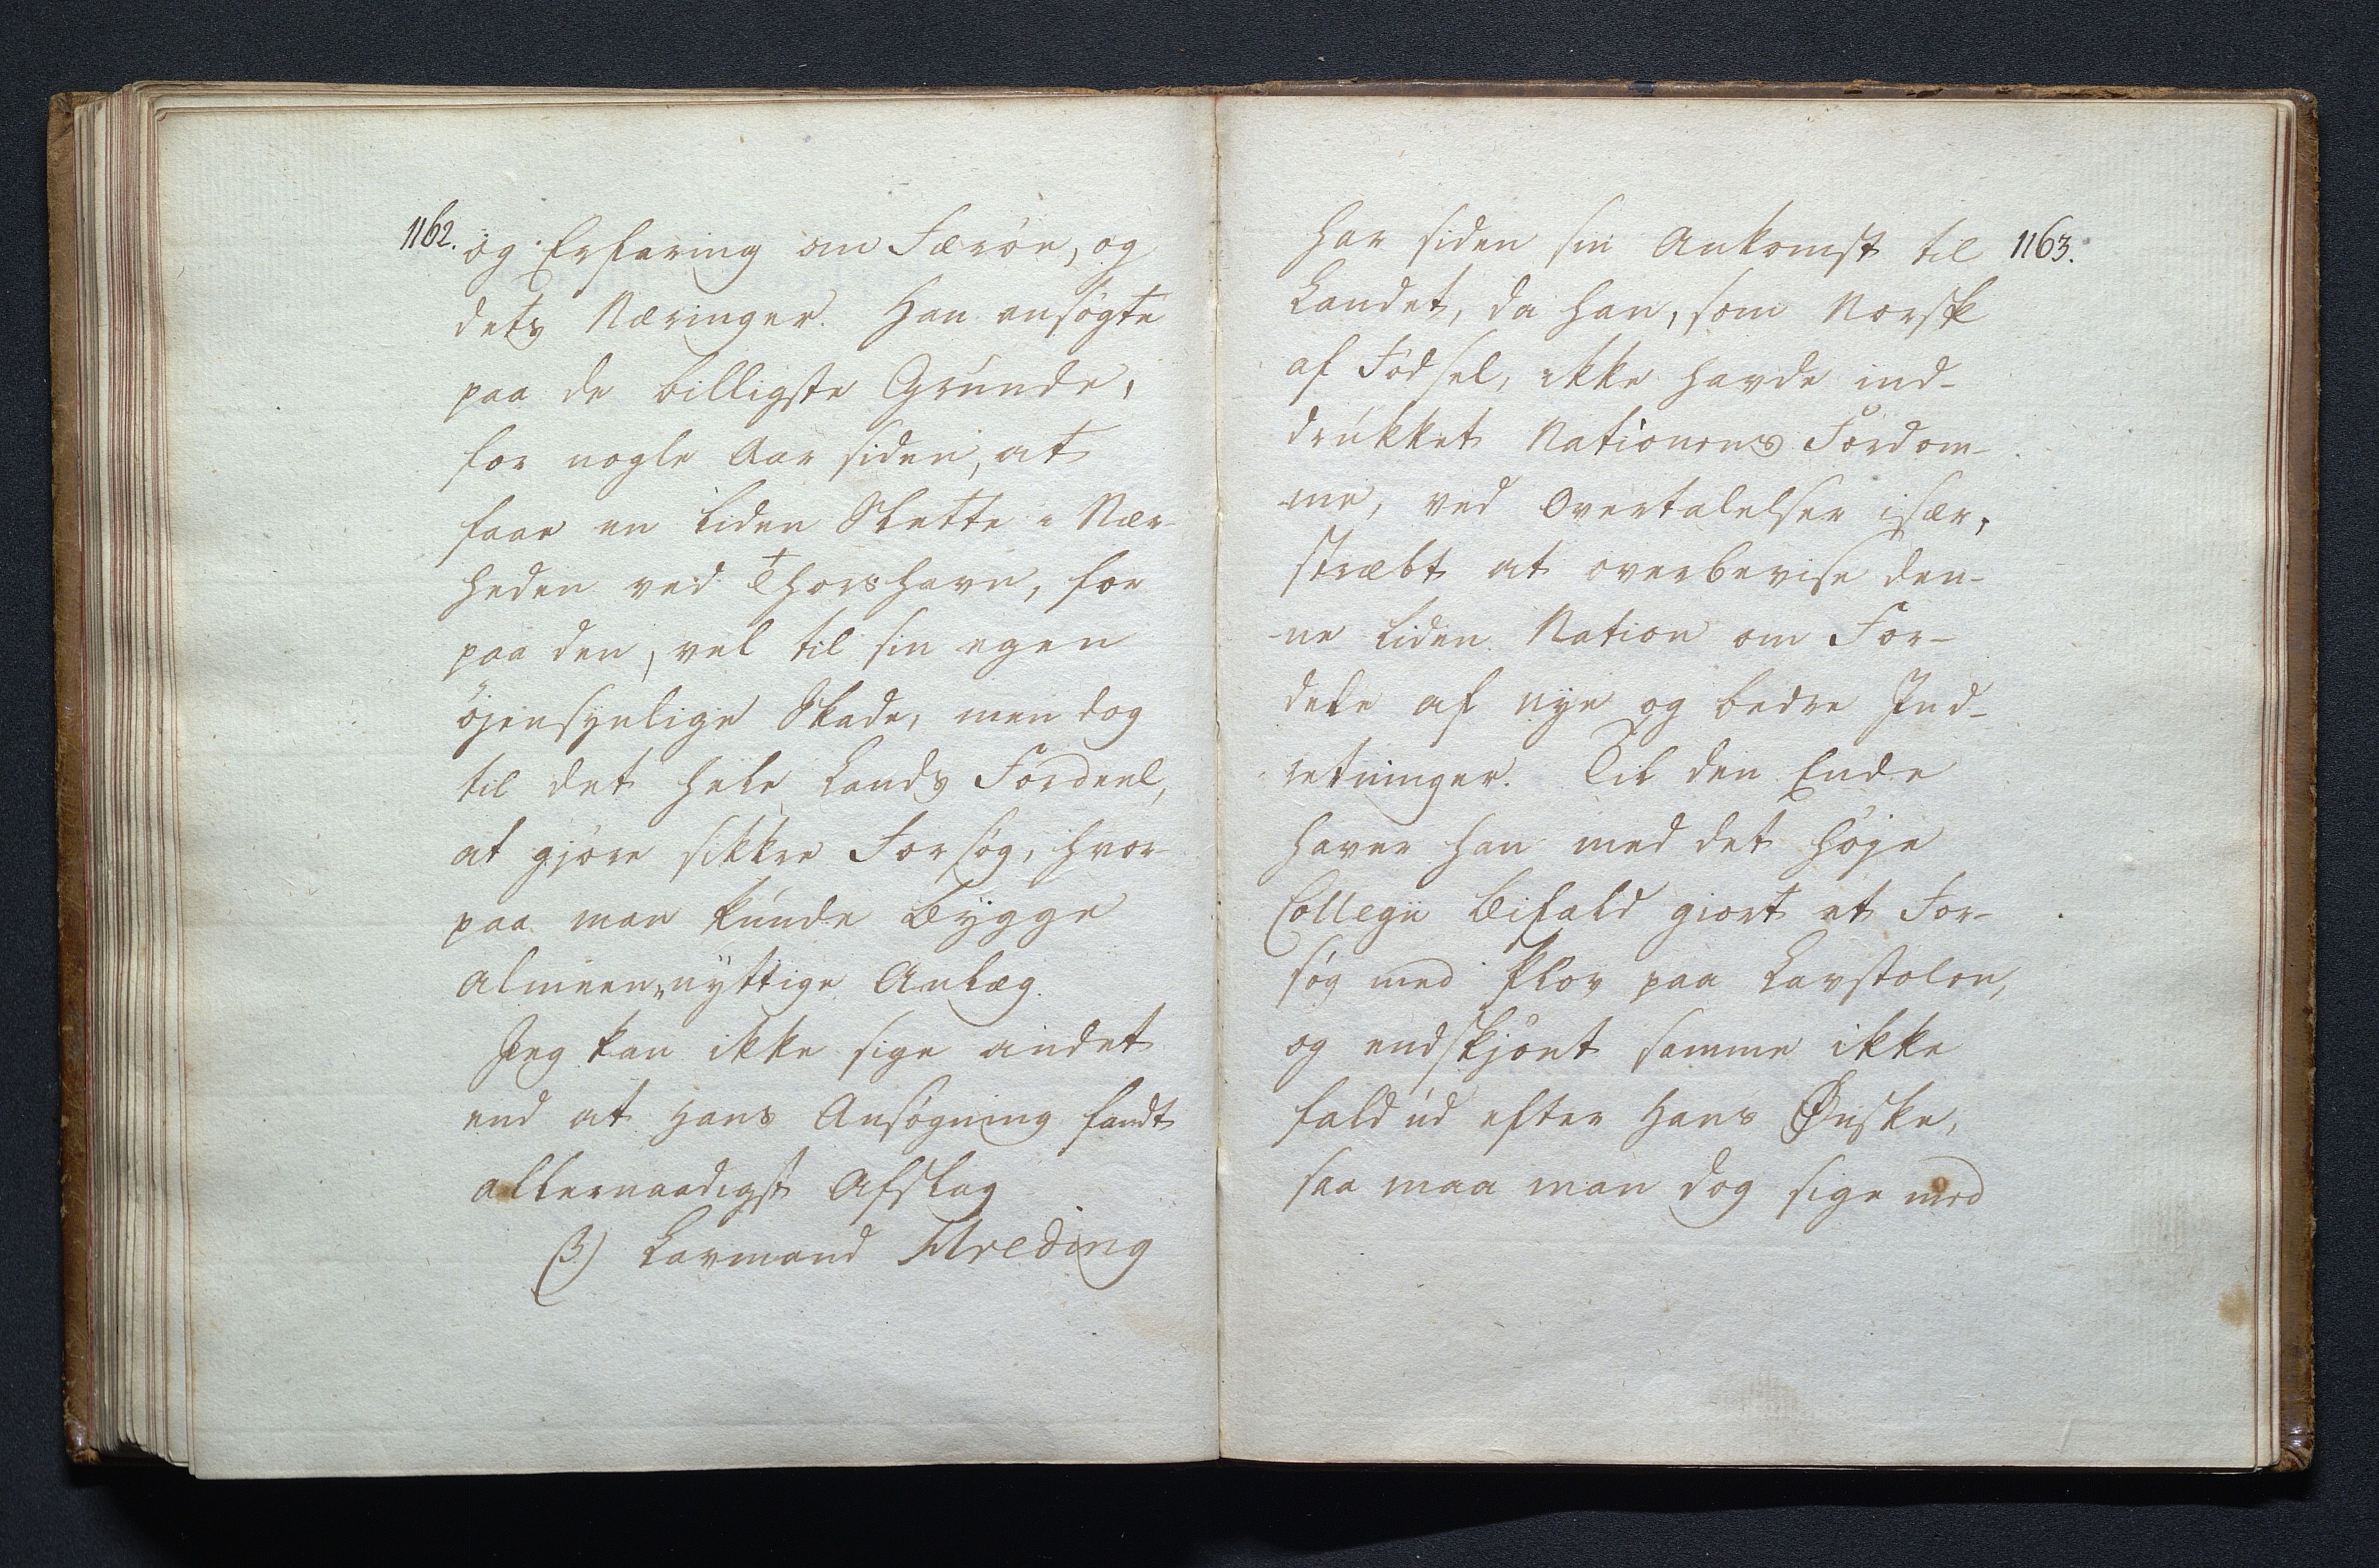 1162.
og Erfaring om Færöe, og
dets Næringer. Han ansögte
paa de billigste Grunde,
for nogle Aar siden, at
faae en liden Slette i Nær-
heden ved Thorshavn, for
paa den, vel til sin egen
öjensynlige Skade, men dog
til det hele Lands Fordeel,
at gjöre sikkre Forsög, hvor-
paa man kunde bygge
almeen„nyttige Anlæg.
Jeg kan ikke sige andet
end at Hans Ansögning fandt
allernaadigst Afslag
β) Lavmand Hveding
1163.
har siden sin Ankomst til
Landet, da han, som Norsk
af Födsel, ikke havde ind-
drukket Nationens Fordom-
me, ved Overtalelser især,
stræbt at overbevise den-
ne liden Nation om For-
dele af nye og bedre Ind-
retninger. Til den Ende
haver han med det höje
Collegii Bifald giort et For-
søg med Plov paa Lavstolen,
og endskjönt samme ikke
fald ud efter Hans Ønske,
saa maa man dog sige med